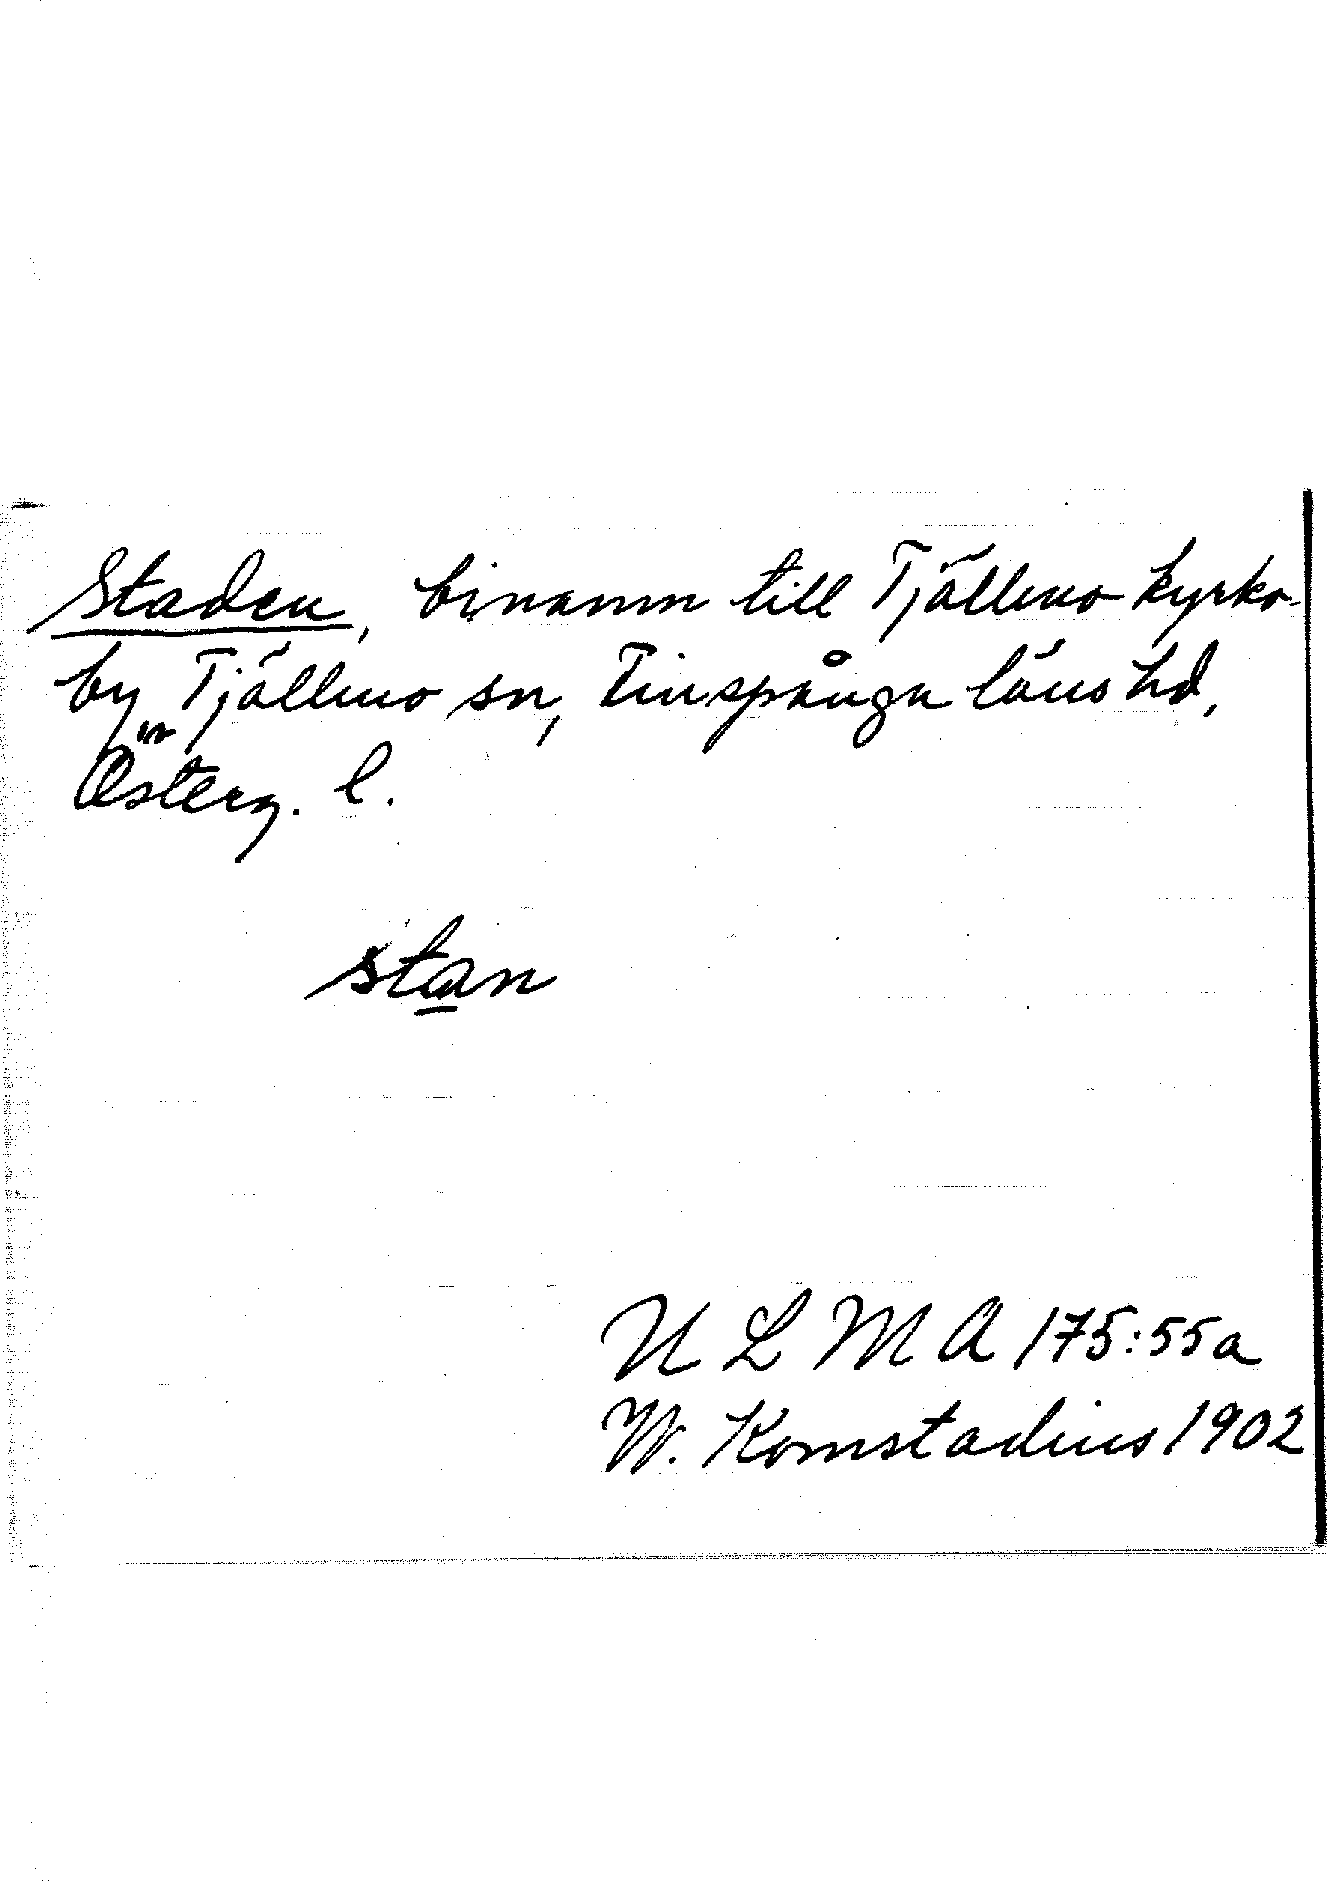 Staden, binamn till Tjällmo kyrko-
by Tjällmo sn, Finspånga läns hd,
Österg. l.
stan
ULMA 175:55a
W. Komstadius 1902